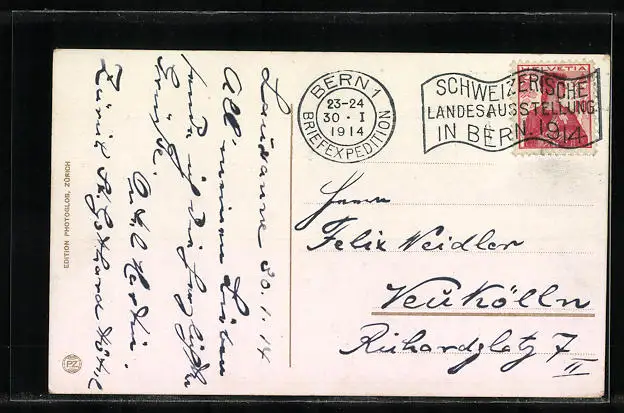 Lausanne 30.1.14
All' meinen Lieben
sende ich die
Grüße.
Zürich St. Gotthard Hôtel
EDITION PHOTOGLOB, ZÜRICH
PZ
BERN 1
23-24
30 · I
1914
BRIEFEXPEDITION
HELVETIA
SCHWEIZERISCHE
LANDESAUSSTELLUNG
IN BERN 1914
Herrn
Felix Neidler
Neukölln
Richardplatz 7
II